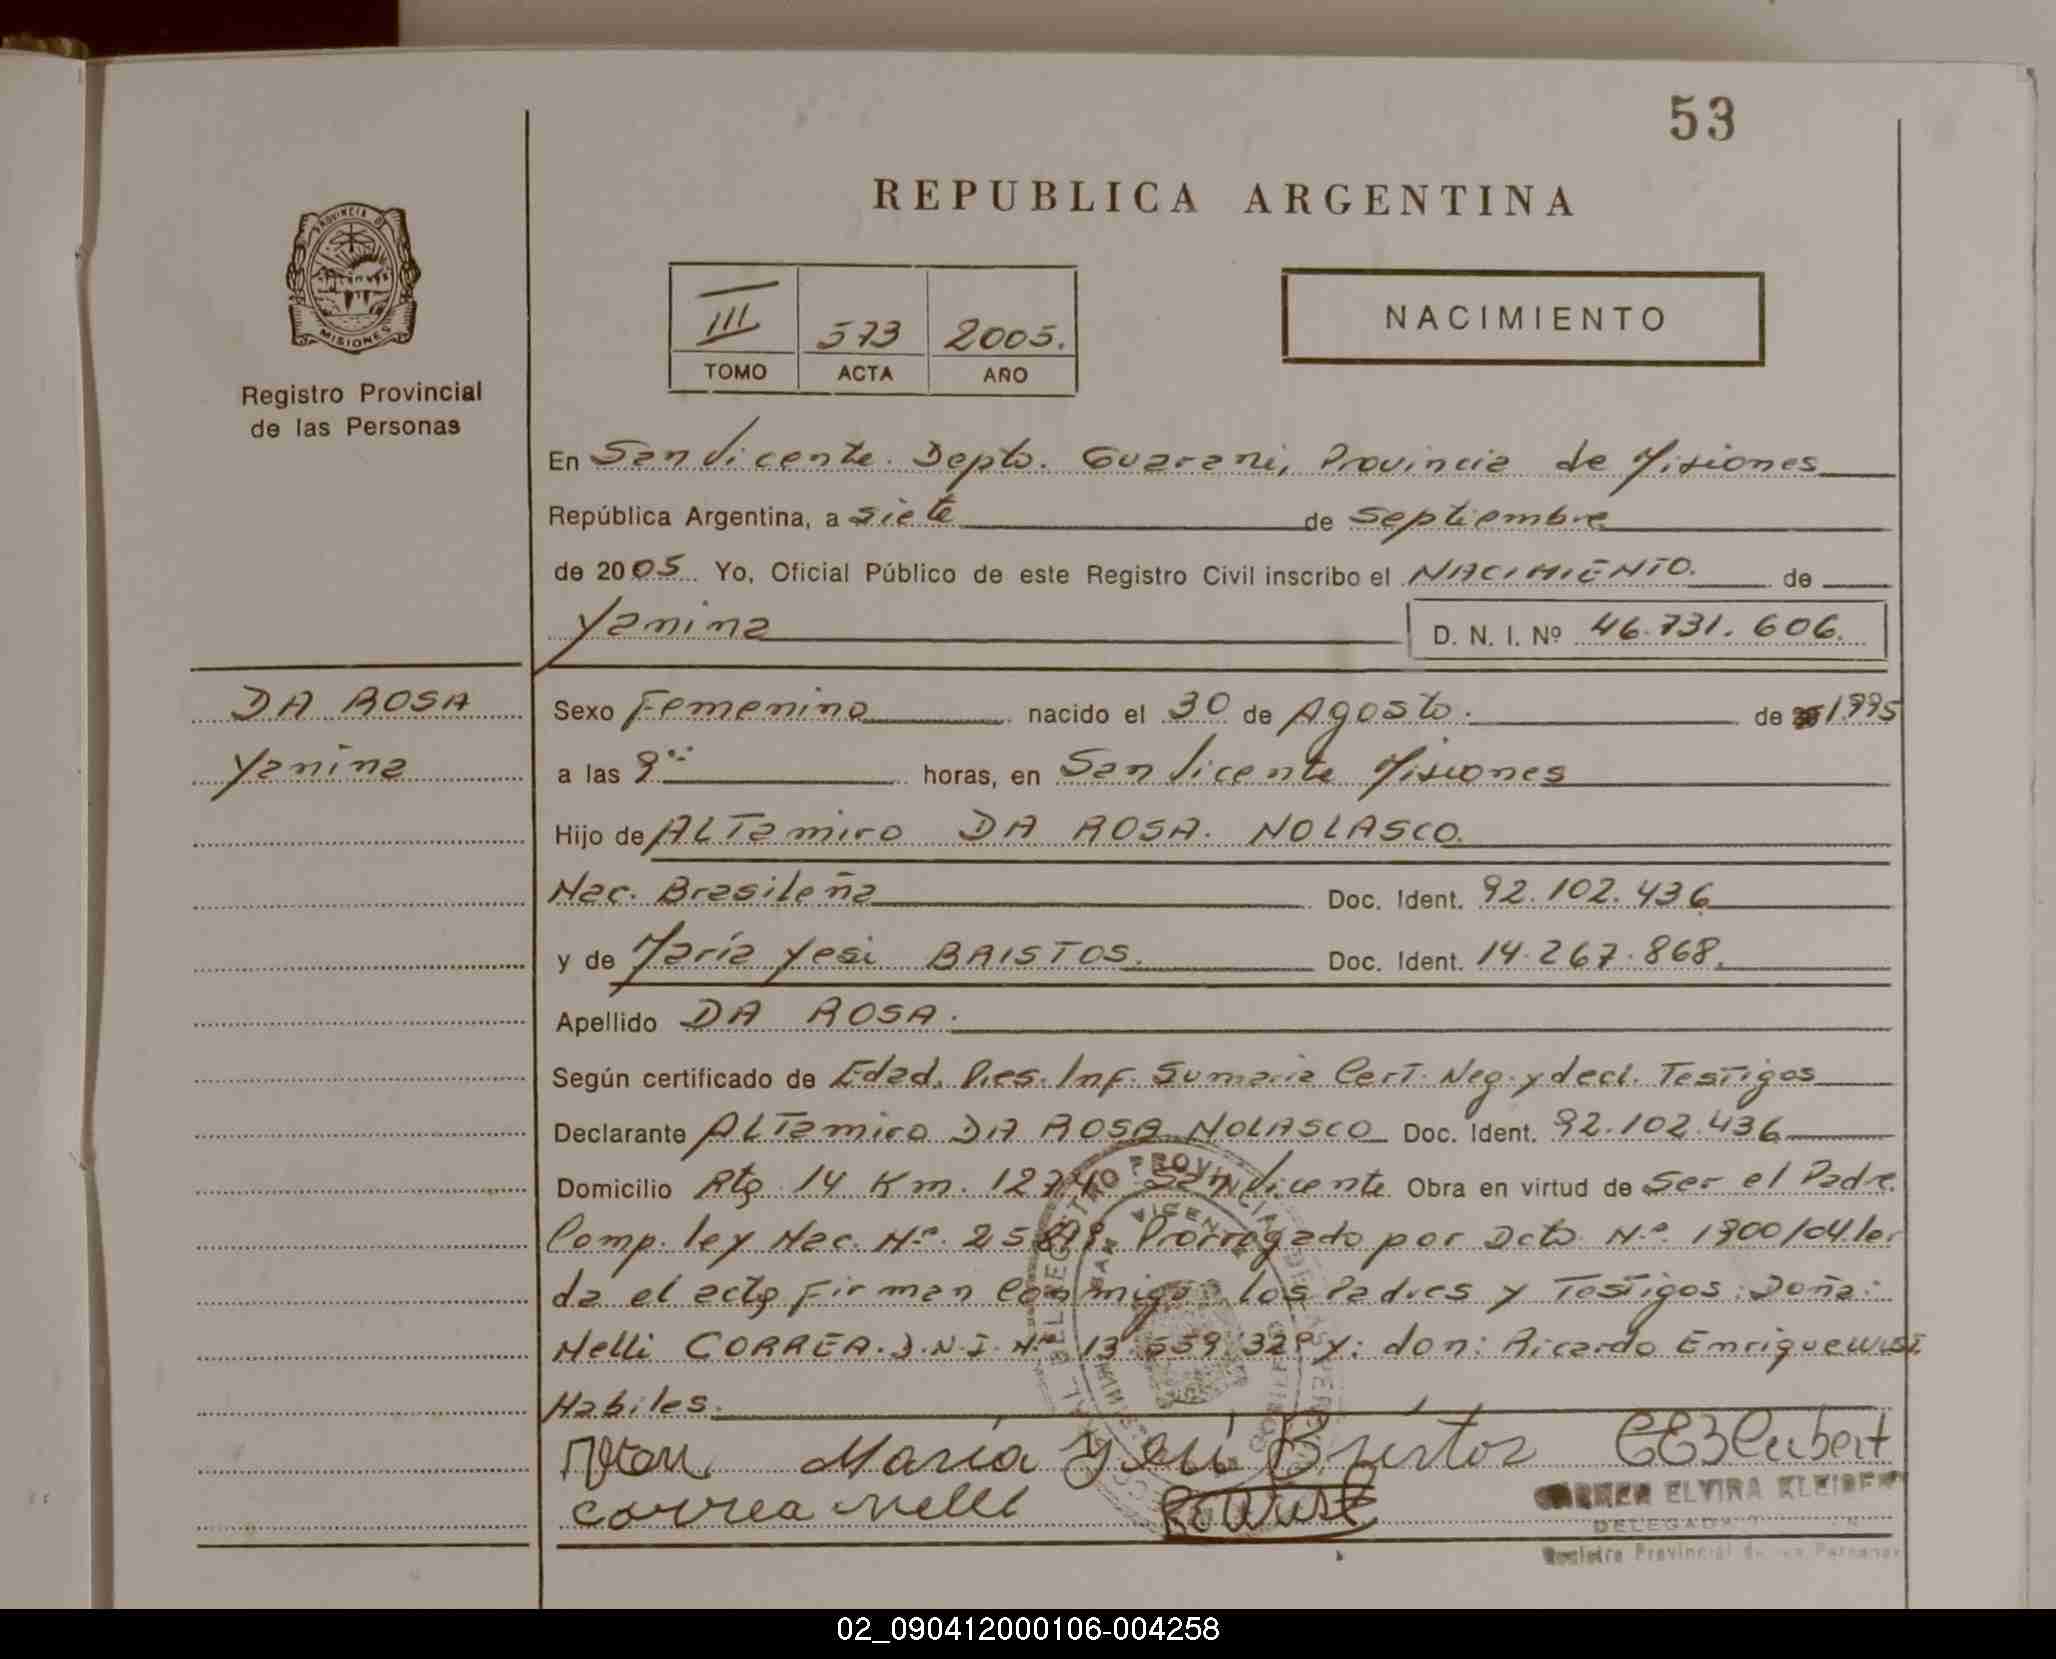 53
REPUBLICA ARGENTINA
PROVINCIA DE
MISIONES
Registro Provincial
de las Personas
III 573 2005.
TOMO ACTA AÑO
NACIMIENTO
En San Vicente. Depto. Guarani, Provincia de Misiones
República Argentina, a siete de Septiembre
de 2005. Yo, Oficial Público de este Registro Civil inscribo el NACIMIENTO. de
Yanina D. N. I. Nº 46.731.606.
DA ROSA
Yanina
Sexo Femenino nacido el 30 de Agosto. de 1.995
a las 9 horas, en San Vicente Misiones
Hijo de ALTamiro DA ROSA. NOLASCO.
Nac. Brasileña Doc. Ident. 92.102.436
y de María Yesi BRISTOS. Doc. Ident. 14.267.868.
Apellido DA ROSA.
Según certificado de Edad. Pres. Inf. Sumaria Cert. Neg. y decl. Testigos
Declarante ALTamiro DA ROSA NOLASCO Doc. Ident. 92.102.436
Domicilio Rta 14 Km. San Vicente Obra en virtud de Ser el Padre.
Comp. ley Nac. Nº. Prorrogado por Dcto Nº. 1900/04. ler
da el acta Firman Conmigo los Padres y Testigos: Doña:
Nelli CORREA. D.N.I. Nº 13.559.329 y: don: Ricardo Enrique
Habiles.
María Yesi Bristos
correa nelli
CARMEN ELVIRA
DELEGADA
Registro Provincial de las Personas
02_090412000106-004258